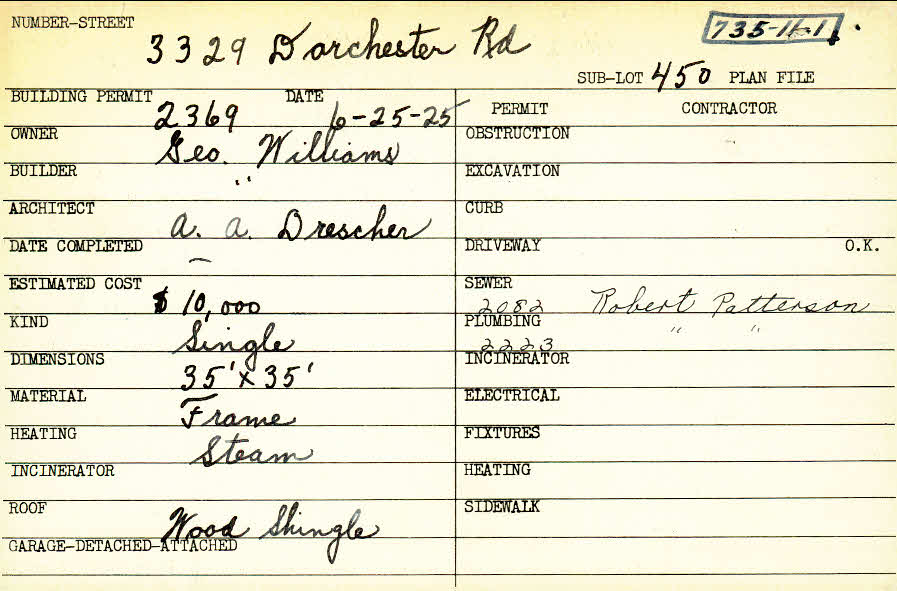 NUMBER-STREET
3329 Dorchester Rd
735-11-1
SUB-LOT 450 PLAN FILE
BUILDING PERMIT 2369 DATE 6-25-25
PERMIT CONTRACTOR
OWNER Geo. Williams
OBSTRUCTION
BUILDER "
EXCAVATION
ARCHITECT A. A. Drescher
CURB
DATE COMPLETED —
DRIVEWAY O.K.
ESTIMATED COST $10,000
SEWER 2082 Robert Patterson
KIND Single
PLUMBING 2223 " "
DIMENSIONS 35' x 35'
INCINERATOR
MATERIAL Frame
ELECTRICAL
HEATING Steam
FIXTURES
INCINERATOR
HEATING
ROOF Wood Shingle
SIDEWALK
GARAGE-DETACHED-ATTACHED